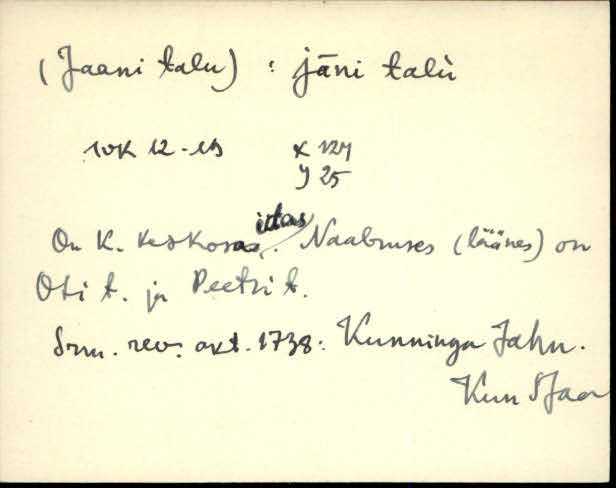 (Jaani talu) : jāni talù
10K 12-13 X 127
Y 25
On K. idas. Naabruses (läänes) on
Oti t. ja Peetri t.
Srm. rev. akt. 1738: Kunninga Jahn.
Kun Jaa